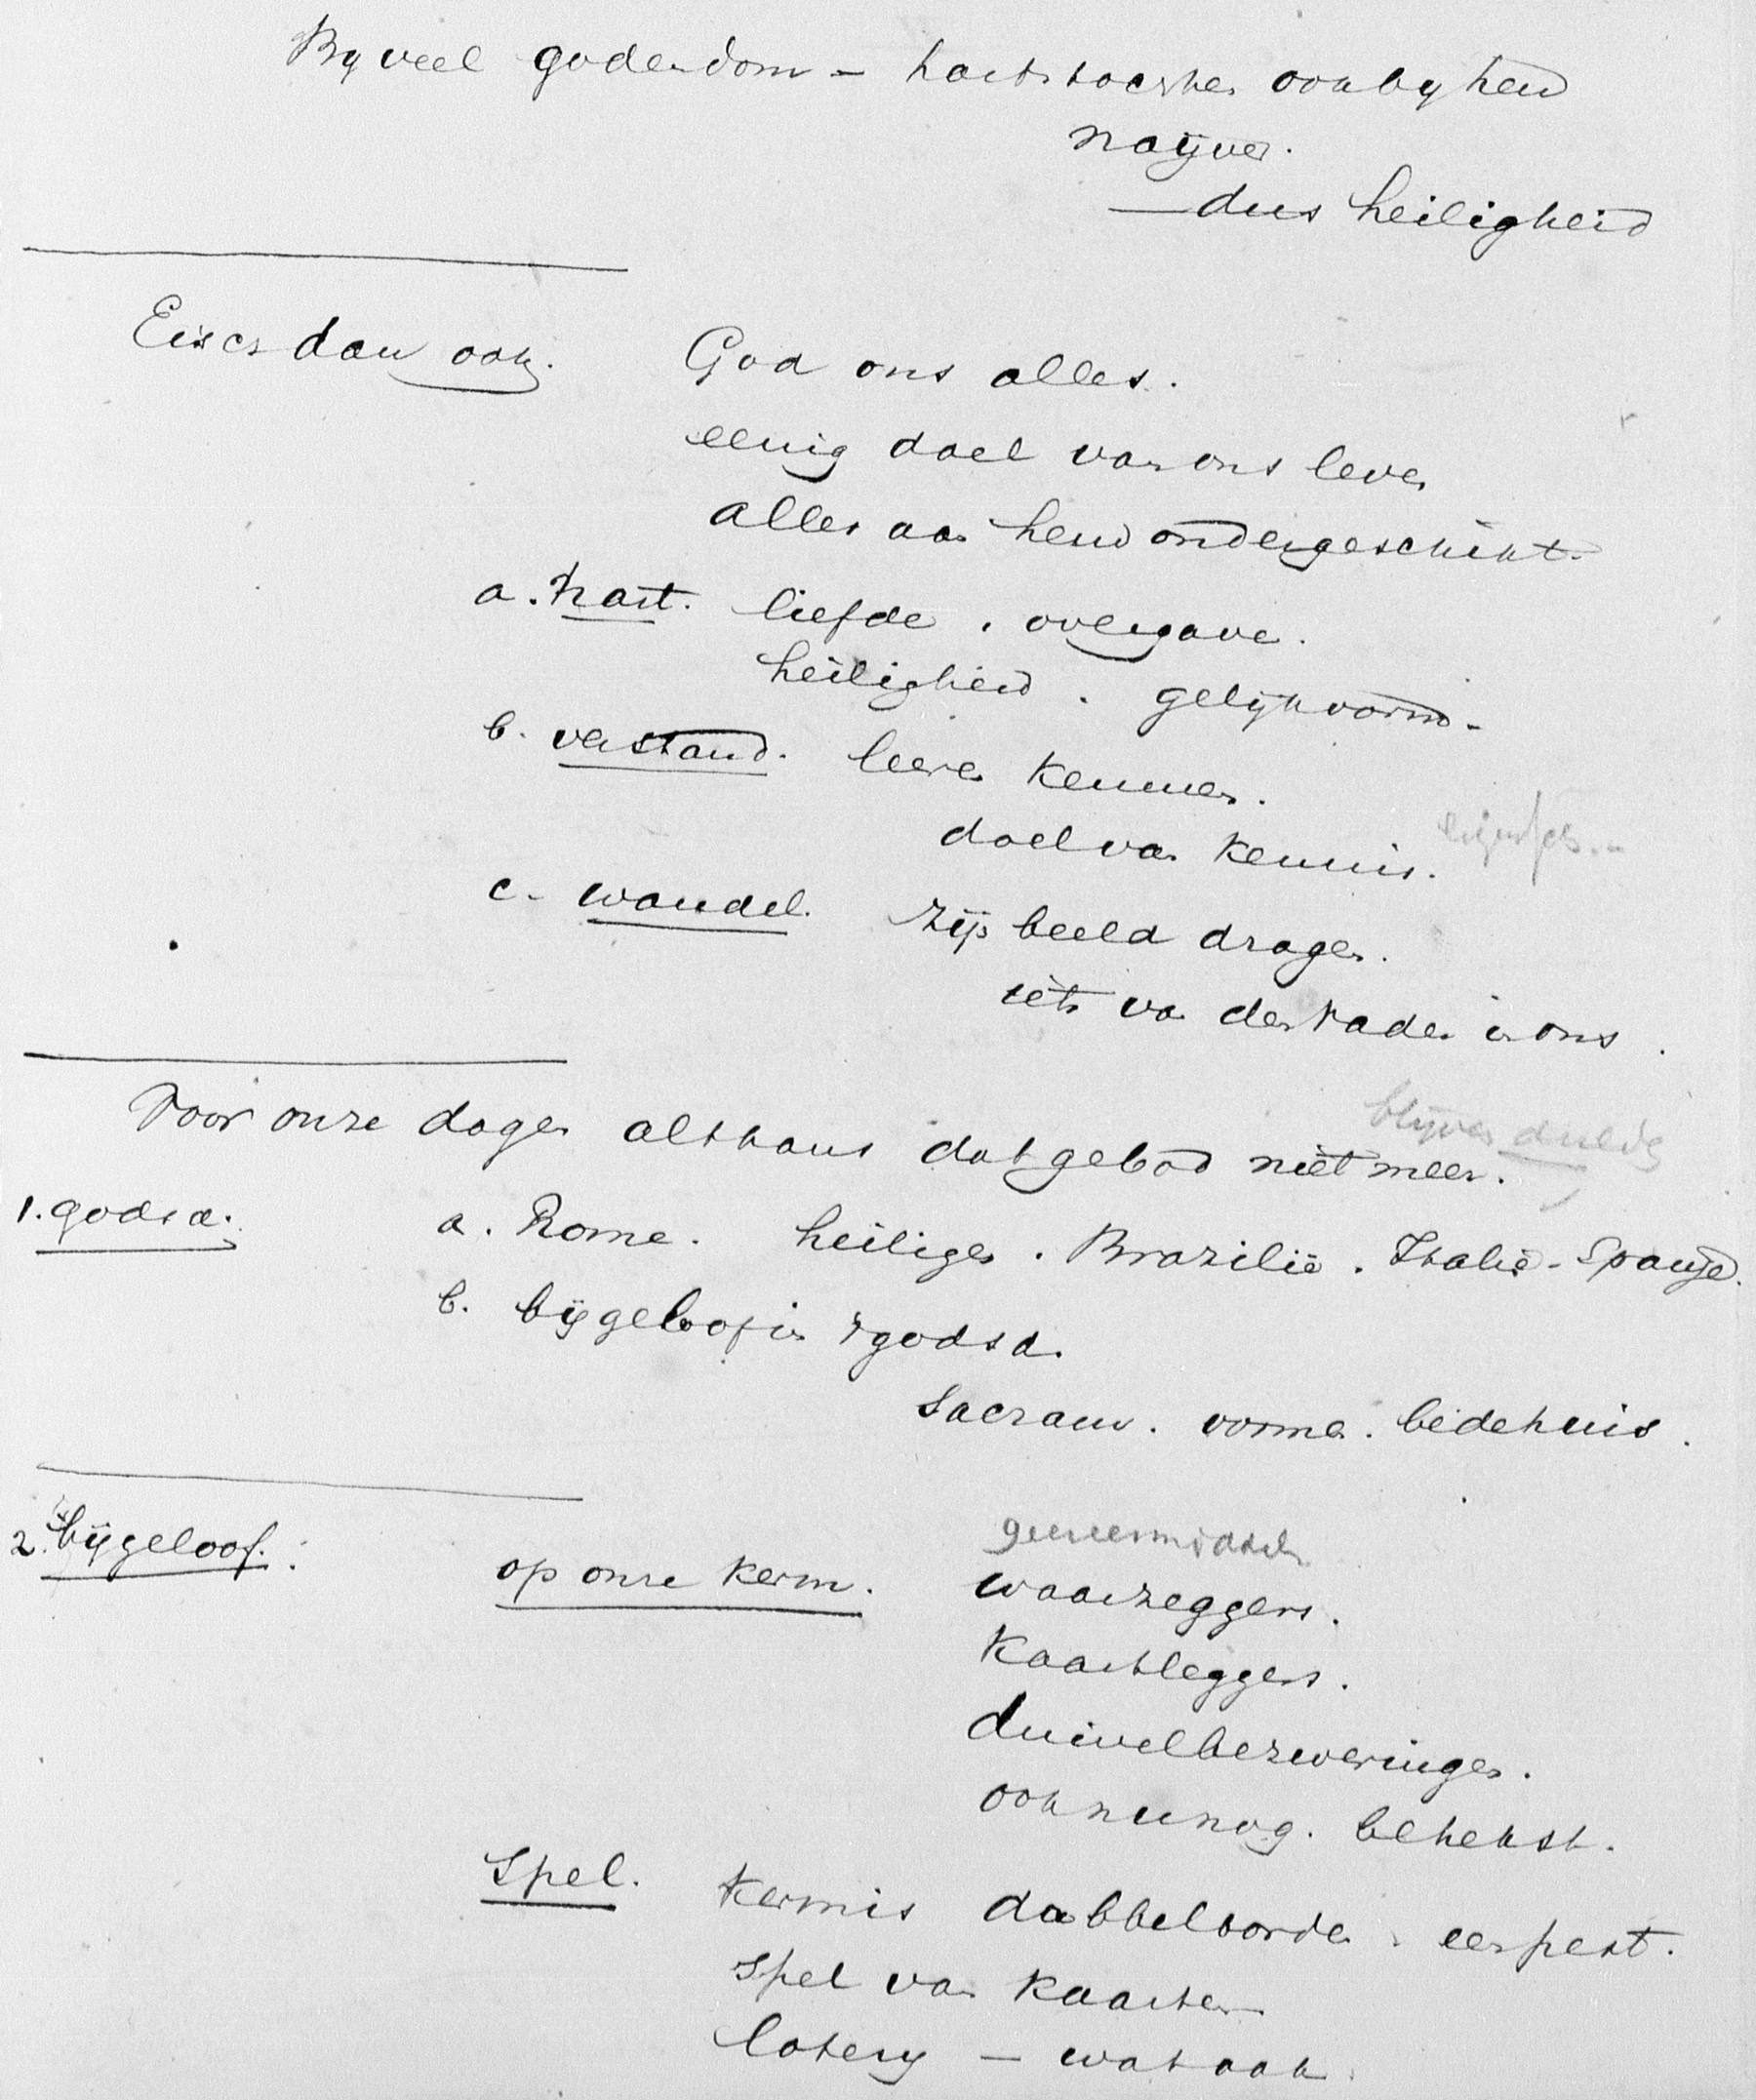 By veel godendom - hartstochten ook by hen
naijver.
— dus heiligheid
Eisch dan ook. God ons alles.
eenig doel van ons leven
alles aan hem ondergeschikt.
a. hart. liefde. overgave.
heiligheid. gelijkvorm.
b. verstand. leeren kennen.
doel van kennis.
c. wandel. zijn beeld dragen.
iets van den Vader in ons.
blijven
Voor onze dagen althans dat gebod niet meer.
1. godsd. a. Rome. heiligen. Brazilië. Italië - Spanje.
b. bijgeloof in godsd.
Sacram. vormen. bedehuis.
2. bijgeloof: geneesmiddelen
op onze kerm. waarzeggers.
Kaartleggers.
duivelbezweringen.
ook nu nog. behekst.
Spel. Kermis dobbelborden. een pest.
Spel van Kaarten —
lotery — wat ook.